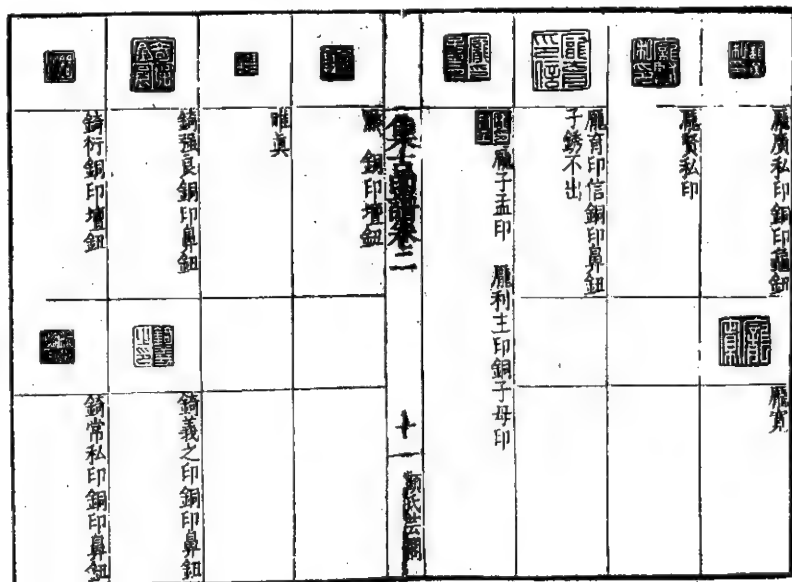 龐廣私印銅印龜鈕
龐寬
龐賢私印
龐育印信銅印鼻鈕
子銹不出
龐子孟印 龐利主印銅子母印
集古印譜卷二
十一
顧氏芸閣
銅印壇鈕
唯真
錡强良銅印鼻鈕
錡義之印銅印鼻鈕
錡衍銅印壇鈕
錡常私印銅印鼻鈕